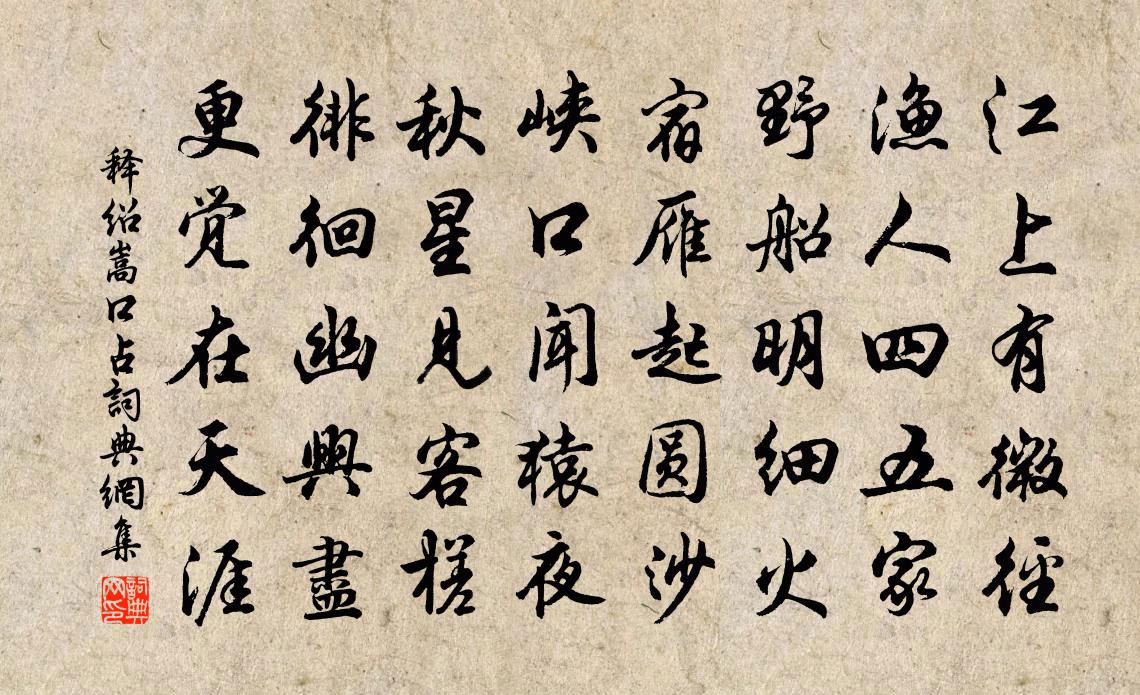 江上有微径
渔人四五家
野船明细火
宿雁起圆沙
峡口闻猿夜
秋星见客槎
徘徊幽興盡
更觉在天涯
释绍嵩口占詞典網集